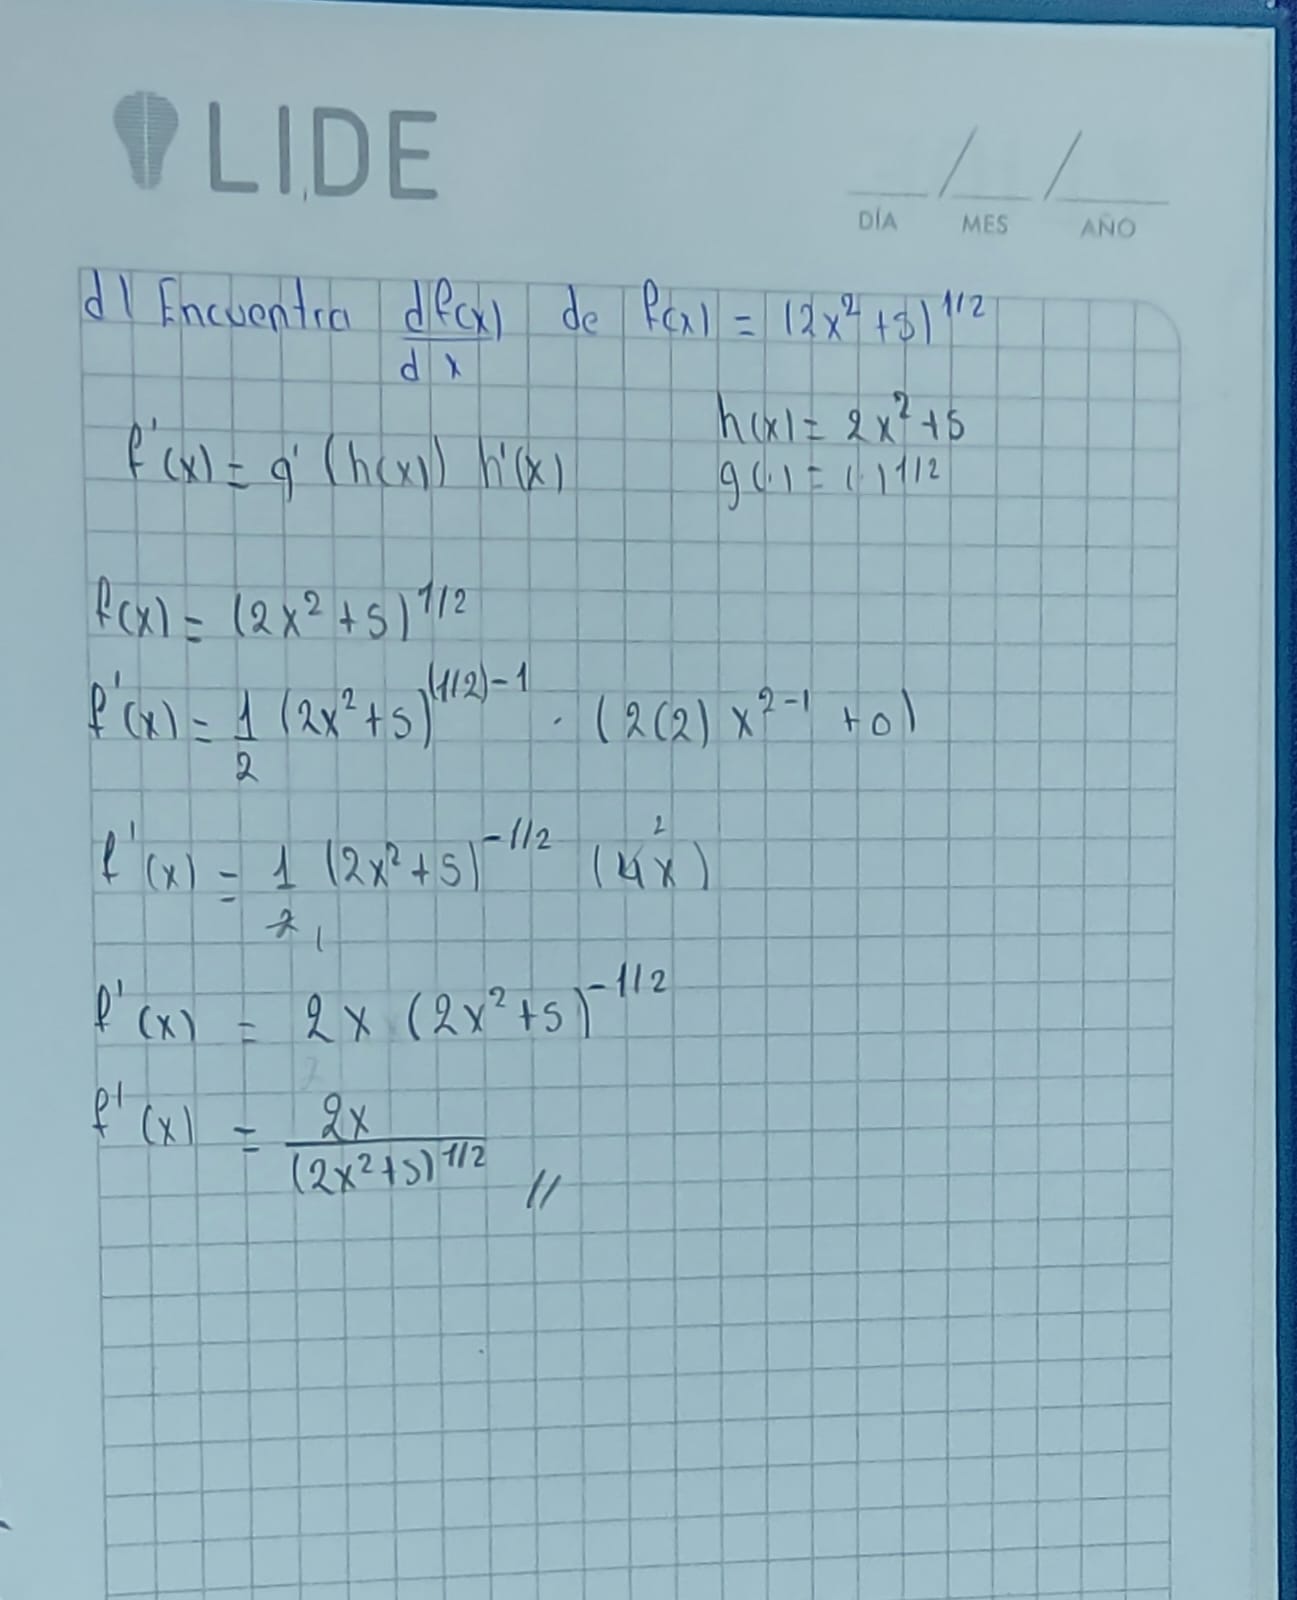 LIDE
DÍA / MES / AÑO
d) Encuentra df(x)/dx de f(x) = (2x² + 5)^1/2
h(x) = 2x² + 5
f'(x) = g' (h(x)) h'(x)
g(.) = (.)^1/2
f(x) = (2x² + 5)^1/2
f'(x) = 1/2 (2x² + 5)^(1/2)-1 · (2(2) x^2-1 + 0)
f'(x) = 1/2 1 (2x² + 5)^-1/2 (4x) 2
f'(x) = 2x (2x² + 5)^-1/2
f'(x) = 2x/(2x² + 5)^1/2 //